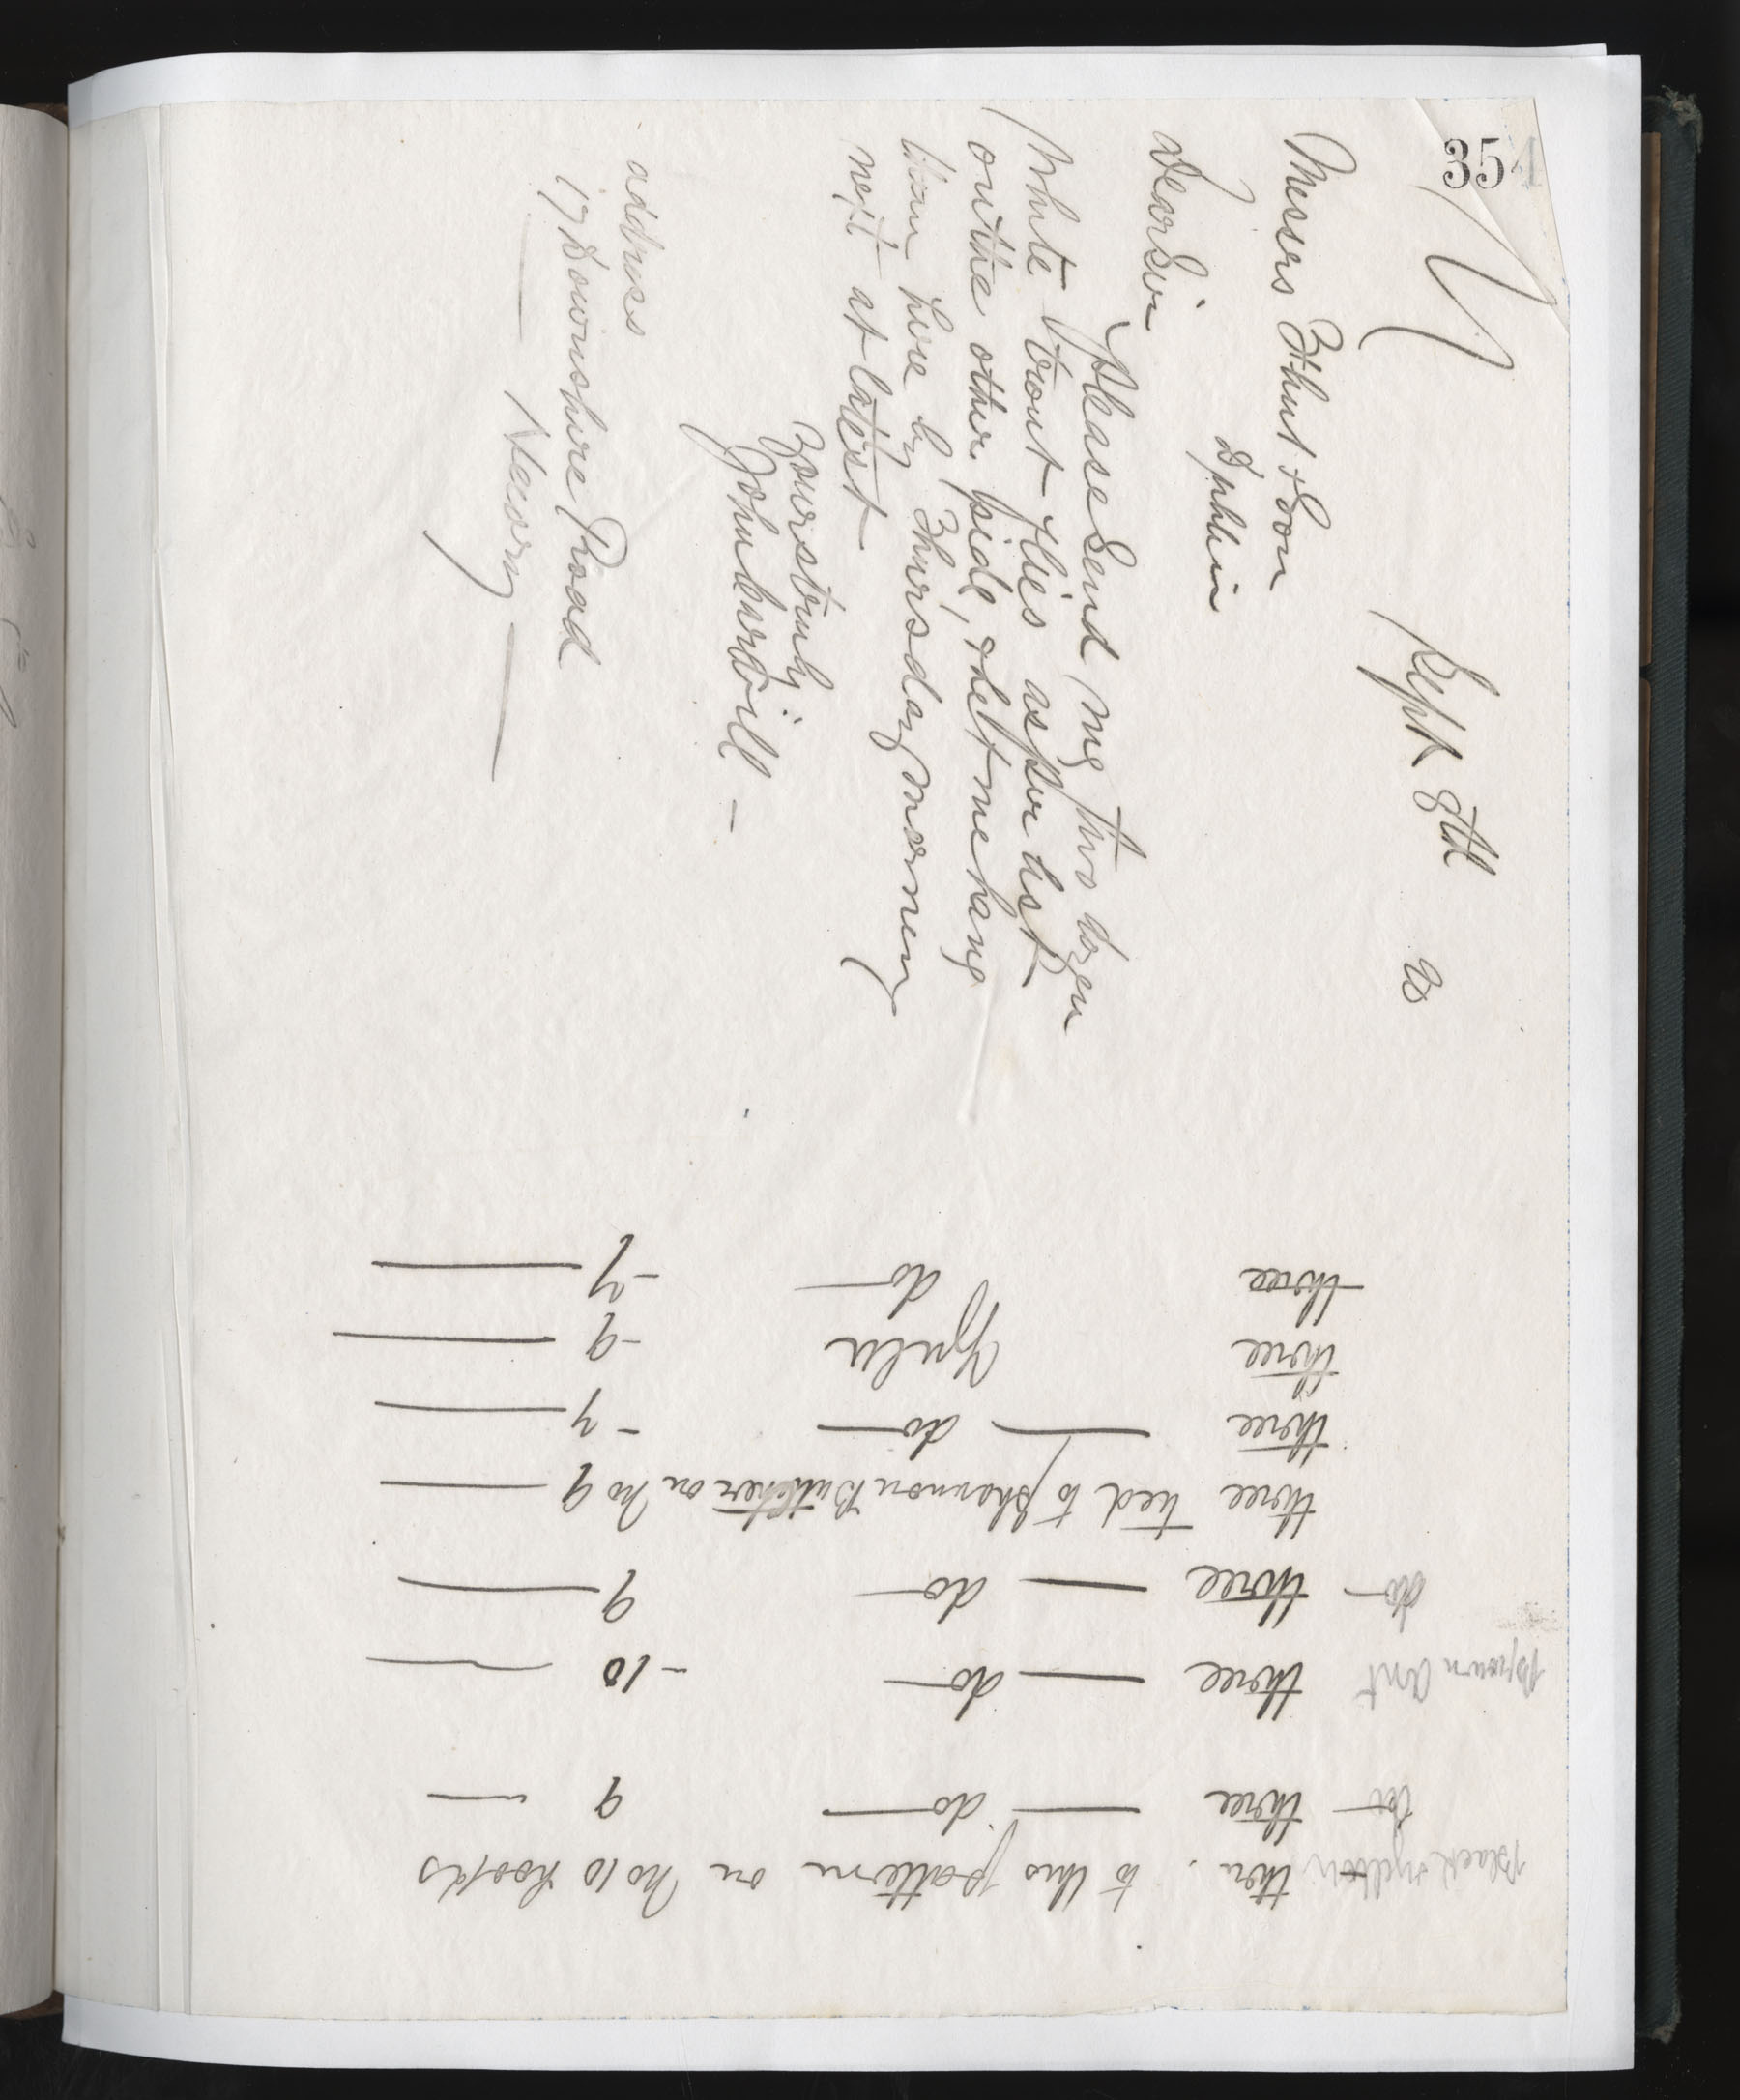 354
Sept 8th 20
Messrs Hunt & Son
Dublin
Dear Sir
Please Send me two dozen
White trout flies as per list
on the other side, & let me have
them here by Thursday morning
next at latest
Yours truly
John
address
17 Downshire Road
Newry
Black three to this pattern on No 10 hooks
do three — do — 9 —
Brown Ant three — do — -10 —
do — three — do — 9 —
three tied to Shannon Butcher on No 9 —
three — do — -7 —
three Zulu -9 —
three do — -7 —